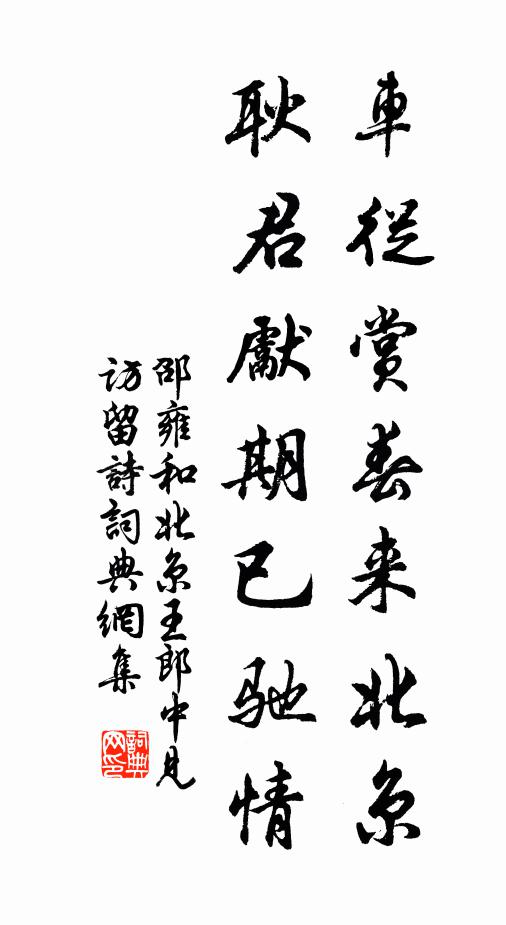 車從賞春来北京
耿君獻期已馳情
邵雍和北京王郎中見
訪留詩詞典網集
詞典網印